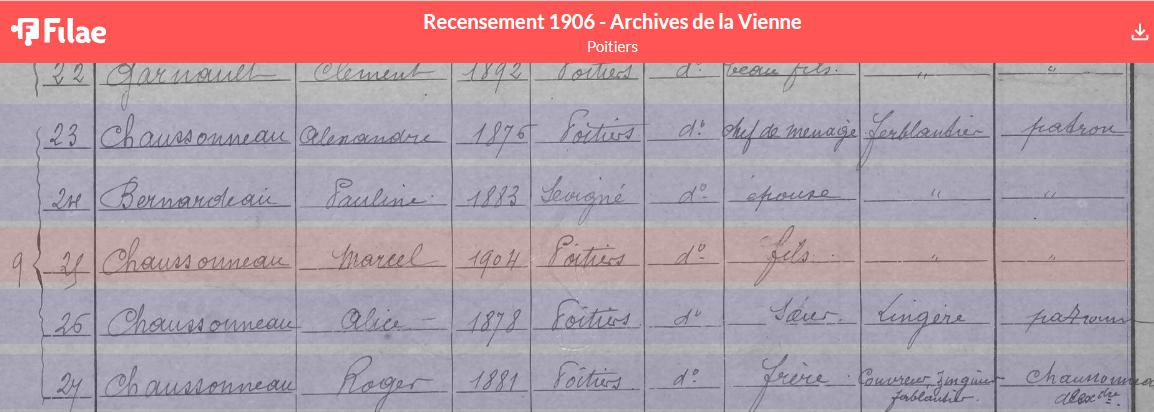 Filae
Recensement 1906 - Archives de la Vienne
Poitiers
22 Garnault Clément 1892 Poitiers d° beau fils " "
23 Chaussonneau Alexandre 1876 Poitiers d° chef de menage ferblantier patron
24 Bernardeau Pauline 1883 Sevigné d° épouse " "
9 25 Chaussonneau Marcel 1904 Poitiers d° fils " "
26 Chaussonneau Alice 1878 Poitiers d° Sœur Lingère patronne
27 Chaussonneau Roger 1881 Poitiers d° frère Couvreur, Zingueur Chaussonneau
ferblantier alexdre